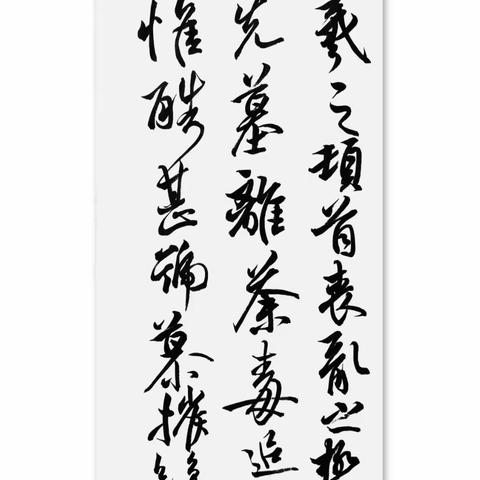 羲之頓首喪亂之極
先墓離荼毒追
惟酷甚號慕摧絕